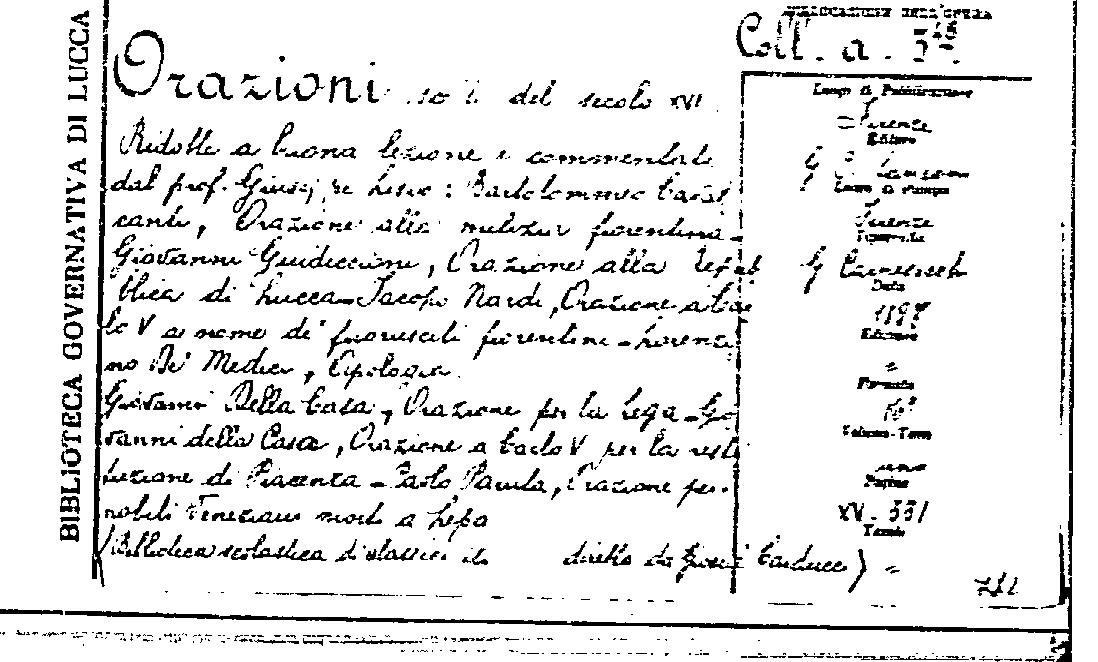 BIBLIOTECA GOVERNATIVA DI LUCCA
COLLOCAZIONE DELL'OPERA
Coll. a.
Orazioni del secolo XVI
Ridotte a buona lezione e commentate
dal prof. Giuseppe Lisio: Bartolommeo Caval
canti, Orazione alla milizia fiorentina -
Giovanni Guidiccioni, Orazione alla Repub
blica di Lucca - Jacopo Nardi, Orazione a Car
lo V a nome de' fuorusciti fiorentini - Lorenzi
no De' Medici, Apologia.
Giovanni Della Casa, Orazione per la Lega - Gio
vanni della Casa, Orazione a Carlo V per la resti
tuzione di Piacenza - Paolo Paruta, Orazione pei
nobili Veneziani morti a Lepa
(Biblioteca scolastica di classici diretta da Giosuè Carducci) =
Luogo di Pubblicazione
Firenze
Editore
G. C. Sansoni
Luogo di stampa
Firenze
Tipografia
G. Carnesecchi
Data
1897
Edizione
=
Formato
16°
Volume-Tomo
uno
Pagine
XV. 331
Tavole